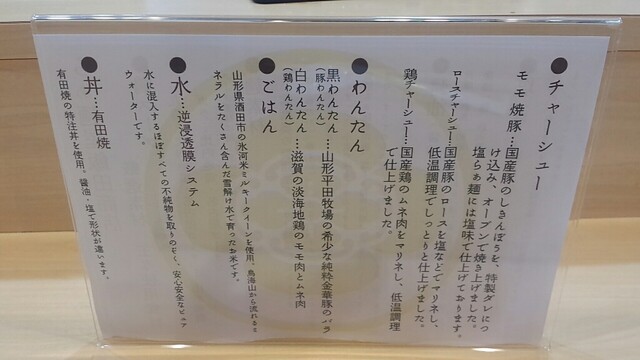 ●チャーシュー
モモ焼豚…国産豚のしきんぼうを、特製ダレにつ
け込み、オーブンで焼き上げました。
塩らぁ麺には塩味で仕上げております。
ロースチャーシュー…国産豚のロースを塩などでマリネし、
低温調理でしっとりと仕上げました。
鶏チャーシュー…国産鶏のムネ肉をマリネし、低温調理
で仕上げました。
●わんたん
黒わんたん…山形平田牧場の希少な純粋金華豚のバラ
(豚わんたん)
白わんたん…滋賀の淡海地鶏のモモ肉とムネ肉
(鶏わんたん)
●ごはん
山形県酒田市の氷河米ミルキークイーンを使用。鳥海山から流れるミ
ネラルをたくさん含んだ雪解け水で育ったお米です。
●水…逆浸透膜システム
水に混入するほぼすべての不純物を取りのぞく、安心安全なピュア
ウォーターです。
●丼…有田焼
有田焼の特注丼を使用。醤油・塩で形状が違います。